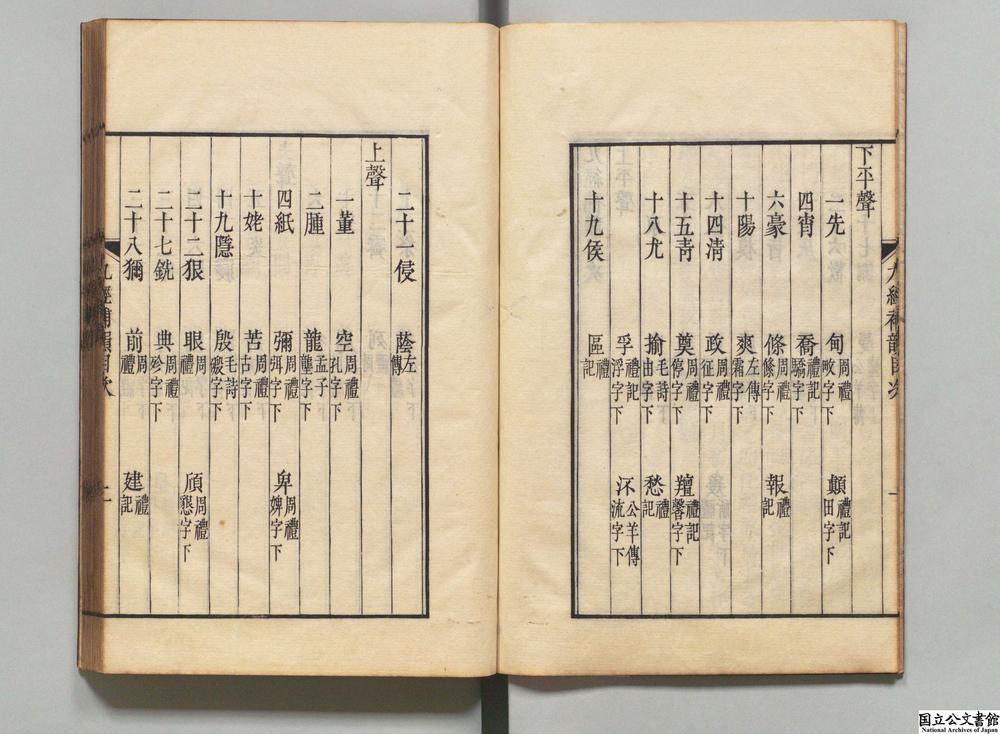 下平聲
一先 甸 周禮畋字下 顚 禮記田字下
四宵 喬 禮記驕字下
六豪 條 周禮絛字下 報 禮記
十陽 爽 左傳霜字下
十四淸 政 周禮征字下
十五靑 奠 周禮停字下 羶 禮記馨字下
十八尤 揄 毛詩由字下 愁 禮記
孚 禮記浮字下 公羊傳流字下
十九侯 區 禮記
九經補韻目次
一
二十一侵 蔭 左傳
上聲
一董 空 周禮孔字下
二腫 龍 孟子壟字下
四紙 彌 周禮弭字下 卑 周禮婢字下
十姥 苦 周禮古字下
十九隱 殷 毛詩字下
二十二很 眼 周禮 頎 周禮懇字下
二十七銑 典 周禮殄字下
二十八獮 前 周禮 建 禮記
九經補韻目次
二
国立公文書館
National Archives of Japan